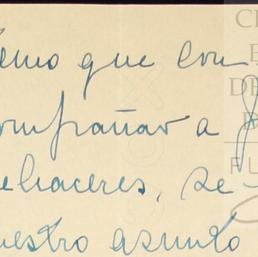 emo que con
ompañar a
ehaceres, se-
uestro asunto